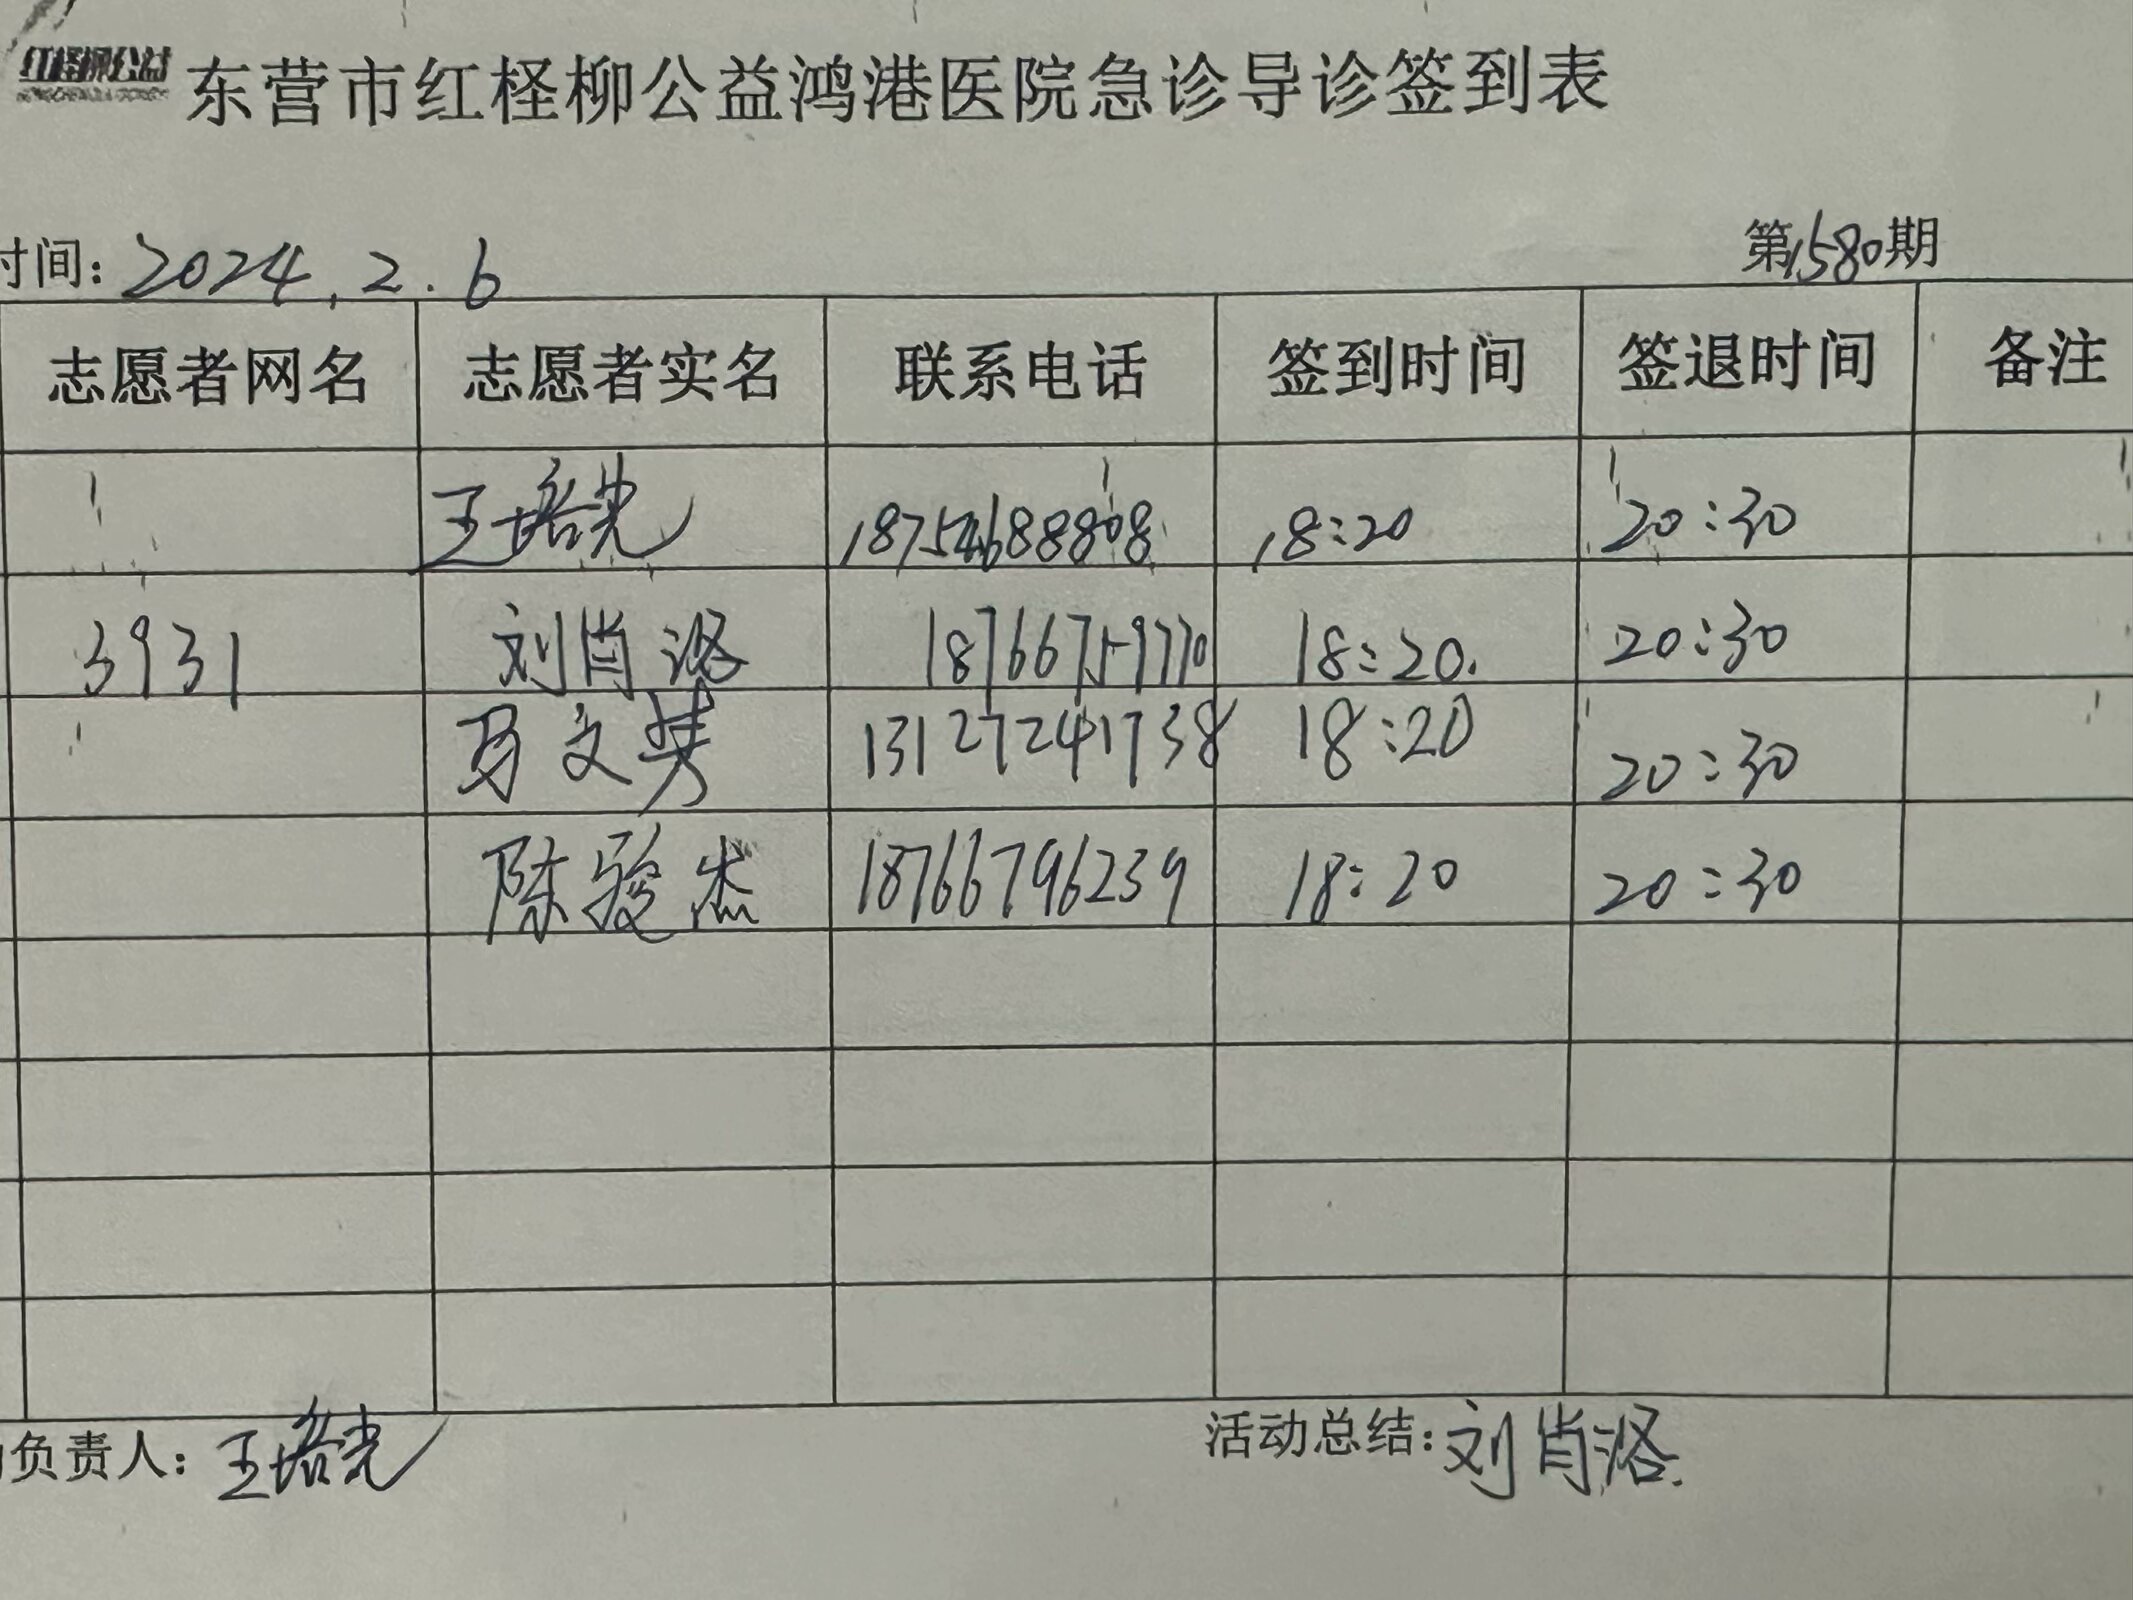 红柽柳公益
东营市红柽柳公益鸿港医院急诊导诊签到表
时间: 2024.2.6 第1580期
志愿者网名 志愿者实名 联系电话 签到时间 签退时间 备注
王培光 18754688808 18:20 20:30
3931 刘肖洛 18766759770 18:20. 20:30
马文芳 13127241738 18:20 20:30
陈骏杰 18766796239 18:20 20:30
负责人: 王培光 活动总结: 刘肖洛